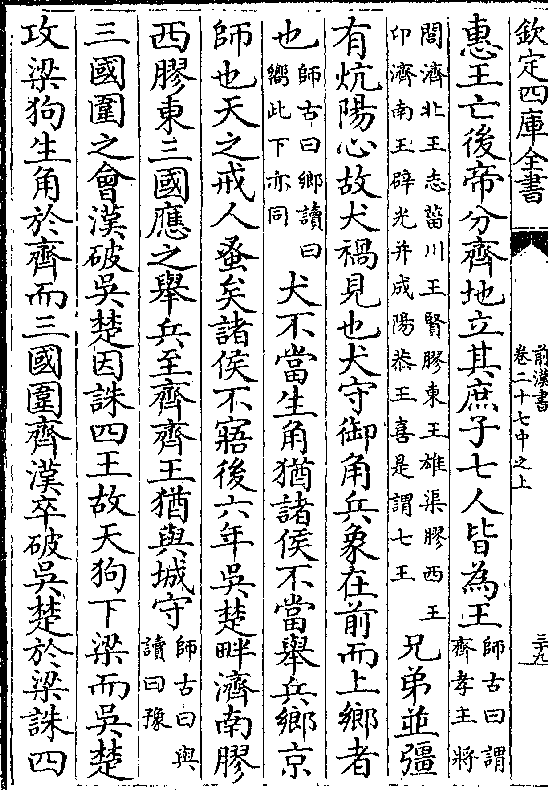 欽定四庫全書
前漢書
卷二十七中之上
三十九
惠王亡後帝分齊地立其庶子七人皆為王師古曰謂齊孝王將
閭濟北王志菑川王賢膠東王雄渠膠西王卬濟南王辟光并成陽恭王喜是謂七王兄弟並彊
有炕陽心故犬禍見也犬守御角兵象在前而上鄉者
也師古曰鄉讀曰嚮此下亦同犬不當生角猶諸侯不當舉兵鄉京
師也天之戒人蚤矣諸侯不寤後六年吳楚畔濟南膠
西膠東三國應之舉兵至齊齊王猶與城守師古曰與讀曰豫
三國圍之會漢破吳楚因誅四王故天狗下梁而吳楚
攻梁狗生角於齊而三國圍齊漢卒破吳楚於梁誅四